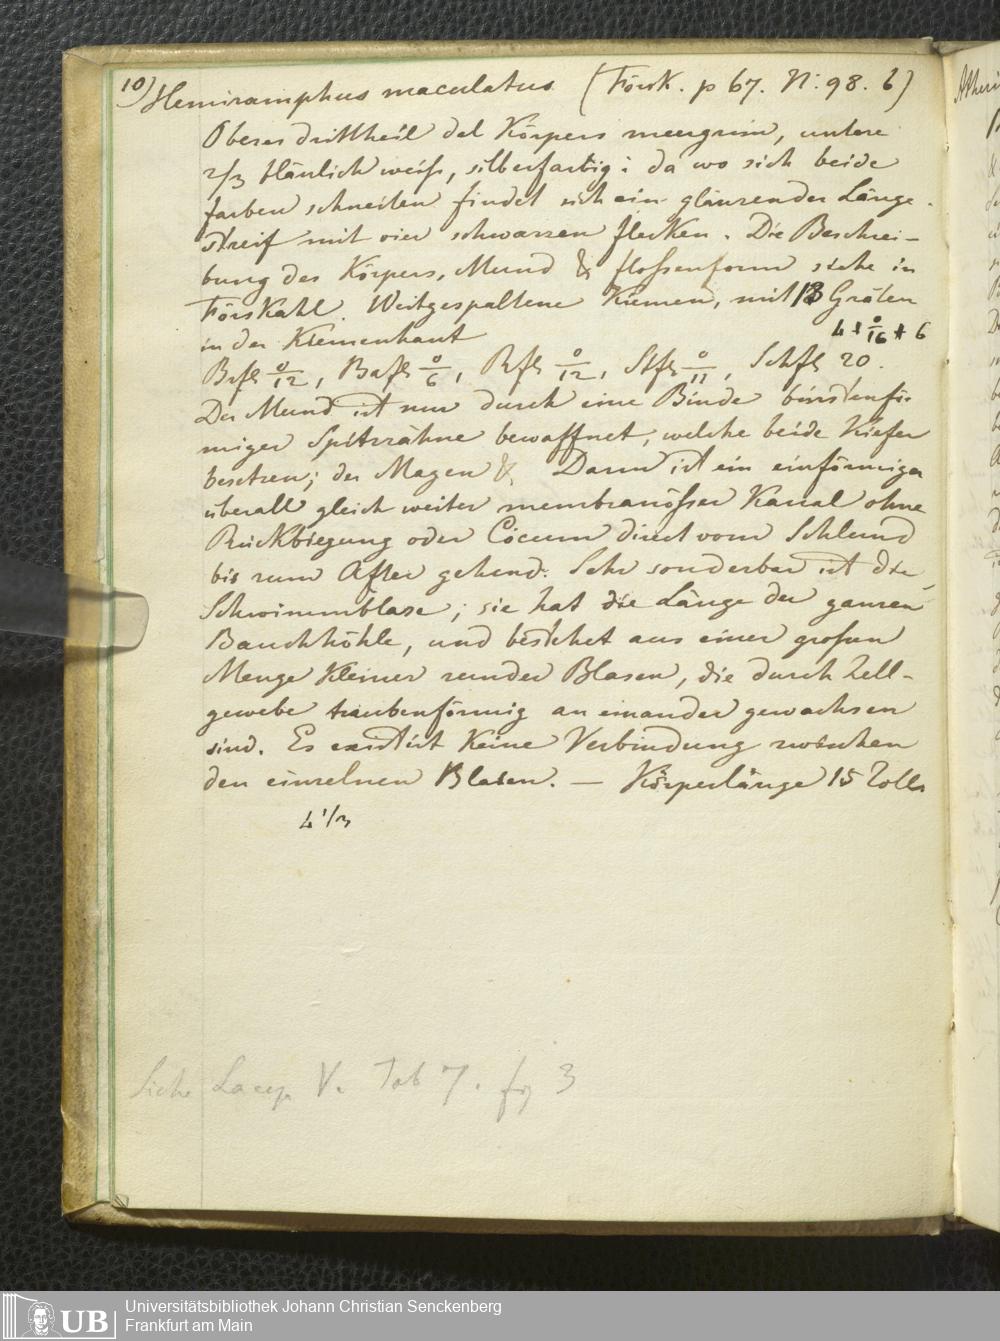 10) Hemiramphus maculatus (Försk. p 67. N: 98. b)
Oberes drittheil des Körpers meergrün, untere
2/3 bläulich weiß, silberfarbig; da wo sich beide
farben schneiden findet sich ein glänzender Länge-
streif mit vier schwarzen flecken. Die Beschrei-
bung des Körpers, Mund & flossenform siehe in
Förskahl. Weitgespaltene Kiemen, mit 13 Gräten
in der Kiemenhaut
4 + 0/16 + 6
Brfl 0/12, Bafl 0/6, Rfl 0/12, Stfl 0/11, Schfl 20.
Der Mund ist nur durch eine Binde bürstenför-
miger Spitzzähne bewaffnet, welche beide Kiefer
besetzen; der Magen & Darm ist ein einförmiger
überall gleich weiter membranößer Kanal ohne
Rückbiegung oder Cöcum direct vom Schlund
bis zum After gehend. Sehr sonderbar ist die
Schwimmblase; sie hat die Länge der ganzen
Bauchhöhle, und bestehet aus einer großen
Menge Kleiner runder Blasen, die durch Zell-
gewebe traubenförmig an einander gewachsen
sind. Es existirt Keine Verbindung zwischen
den einzelnen Blasen. — Körperlänge 15 Zoll
4 1/3
Siehe Lacep. V. Tab 7. fig 3
UB
Universitätsbibliothek Johann Christian Senckenberg
Frankfurt am Main